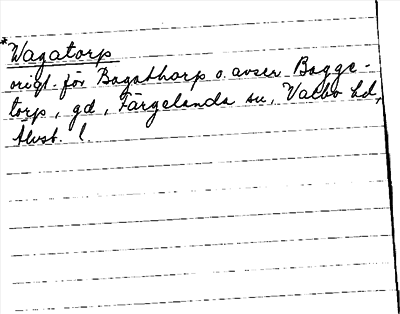 *Wagatorp
origt. för Bagathorp o. avser Bagge-
torp, gd, Färgelanda sn, Valbo hd,
Älvsb. l.